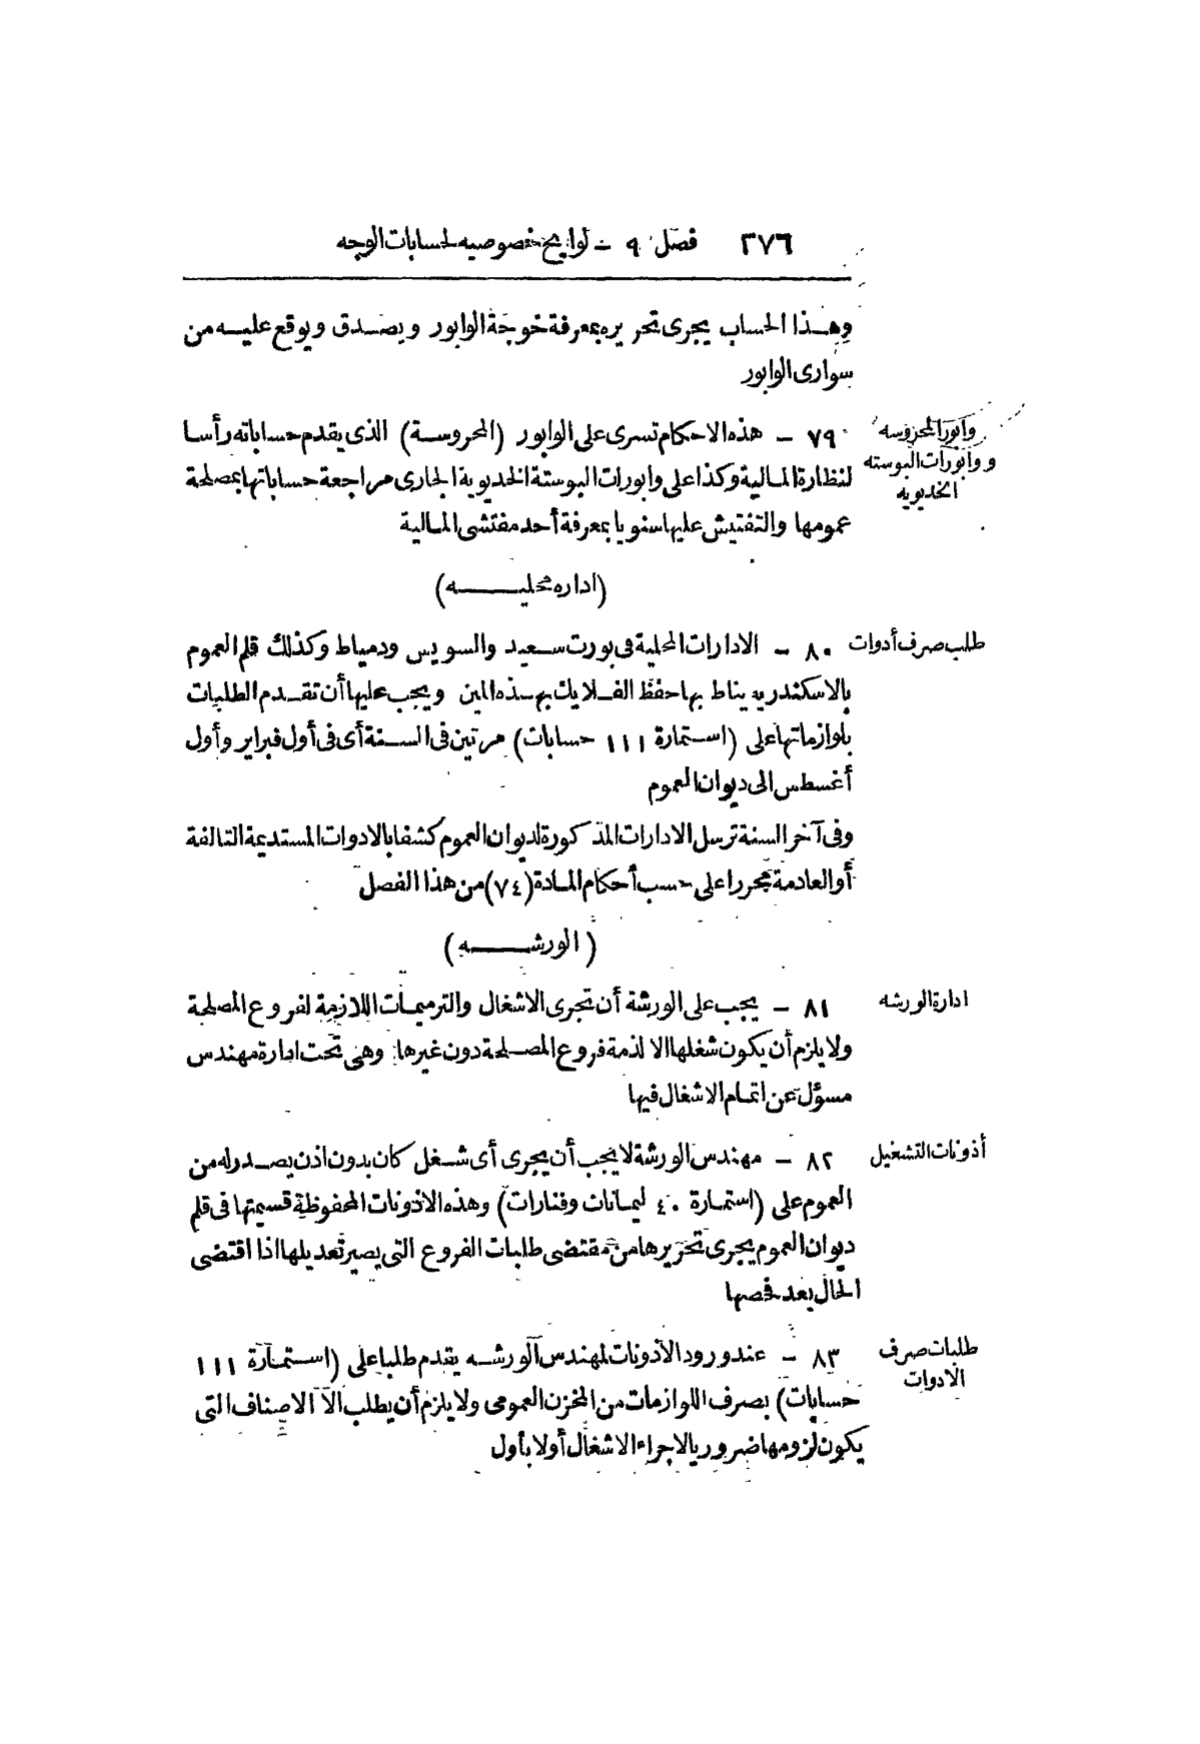 ٣٧٦ فصل ٩ - لوايح خصوصيه لحسابات الوجه
وهذا الحساب يجرى تحريره بمعرفة خوجة الوابور ويصدق ويوقع عليه من
سوارى الوابور
وابور المحروسه
ووابورات البوسته
الخديويه
٧٩ - هذه الاحكام تسرى على الوابور (المحروسة) الذى يقدم حساباته رأسا
لنظارة المالية وكذا على وابورات البوستة الخديوية الجارى مراجعة حساباتها بمصلحة
عمومها والتفتيش عليها سنويا بمعرفة أحد مفتشى المالية
(اداره محليه)
طلب صرف أدوات
٨٠ - الادارات المحلية فى بورت سعيد والسويس ودمياط وكذلك قلم العموم
بالاسكندريه يناط بها حفظ الفلايك بهذه المين ويجب عليها أن تقدم الطلبات
بلوازماتها على (استمارة ١١١ حسابات) مرتين فى السنة أى فى أول فبراير وأول
أغسطس الى ديوان العموم
وفى آخر السنة ترسل الادارات المذكورة لديوان العموم كشفا بالادوات المستديمة التالفة
أو العادمة محررا على حسب أحكام المادة (٧٤) من هذا الفصل
(الورشه)
ادارة الورشه
٨١ - يجب على الورشة أن تجرى الاشغال والترميمات اللازمة لفروع المصلحة
ولا يلزم أن يكون شغلها الا لذمة فروع المصلحة دون غيرها وهى تحت ادارة مهندس
مسؤل عن اتمام الاشغال فيها
أذونات التشغيل
٨٢ - مهندس الورشة لا يجب أن يجرى أى شغل كان بدون اذن يصدر له من
العموم على (استمارة ٤٠ ليمانات وفنارات) وهذه الاذونات المحفوظة قسيمتها فى قلم
ديوان العموم يجرى تحريرها من مقتضى طلبات الفروع التى يصير تعديلها اذا اقتضى
الحال بعد فحصها
طلبات صرف
الادوات
٨٣ - عند ورود الاذونات لمهندس الورشه يقدم طلبا على (استمارة ١١١
حسابات) بصرف اللوازمات من المخزن العمومى ولا يلزم أن يطلب الا الاصناف التى
يكون لزومها ضروريا لاجراء الاشغال أولا بأول